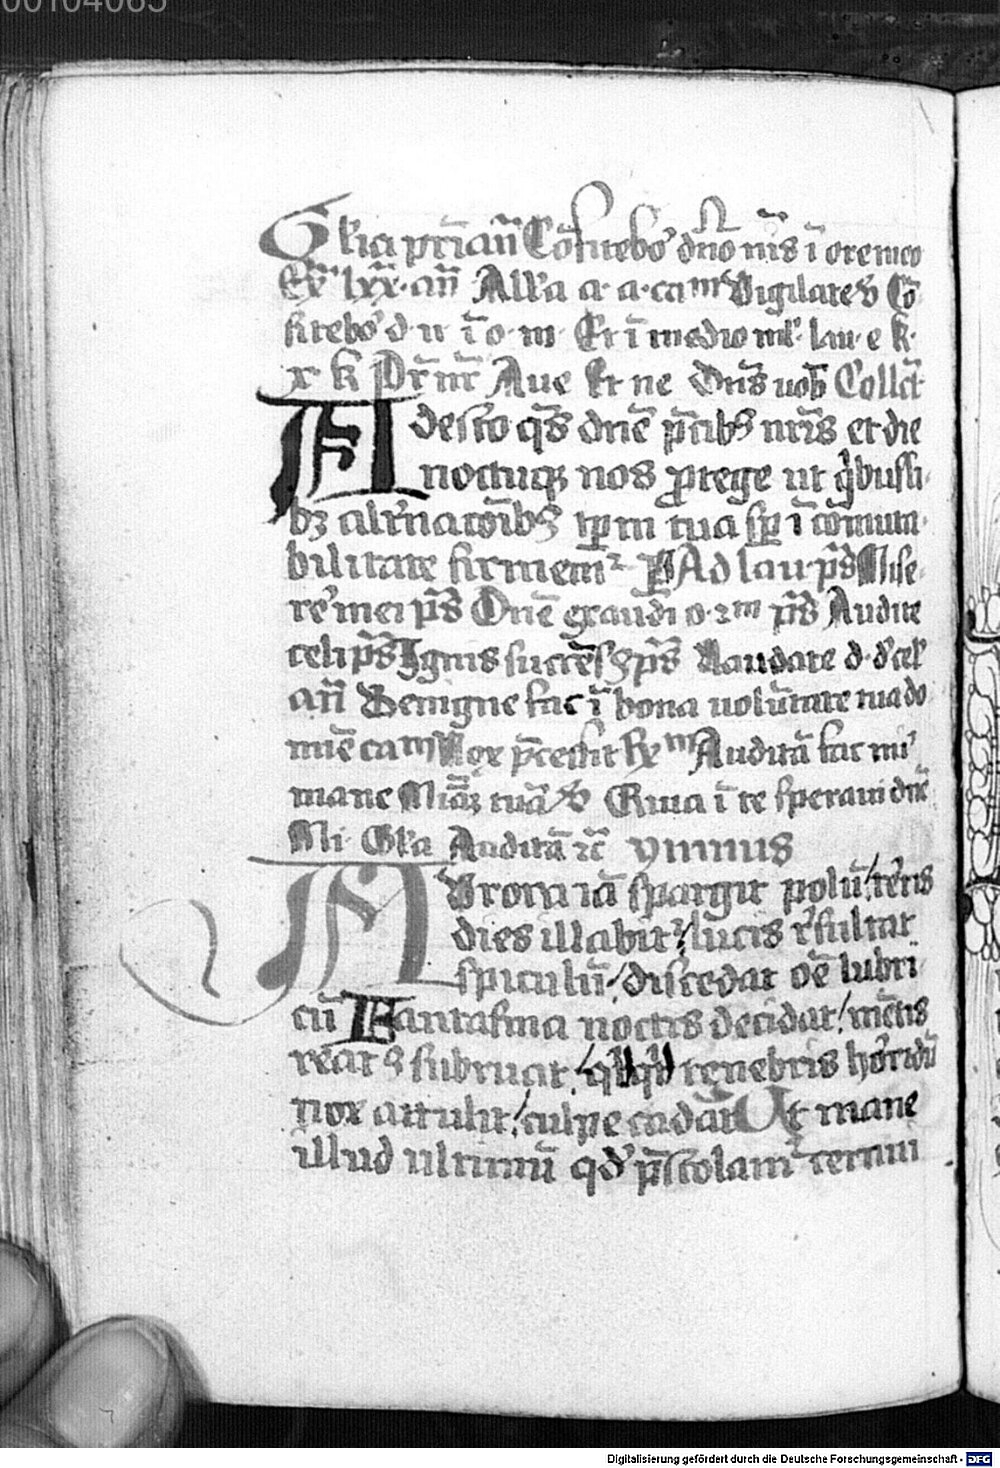 00104065
Glia pri añ Cōfitebor dño nĩs ī ore meo
Ex lxx añ All'a a· a· ca m Vigilate v̄ Cō
fitebor d· n ī o· m· Et ī medio ml' lau· e k·
x k Pr̄ nr̄ Aue Et ne Dñs uob Collct
Adesto qs dñe p̄cibs nr̄is et die
noctuqz nos protege ut qͥbussi
bz alt'nacōibs tp̄m tua sp̄ ī cōmuta
bilitate firmemr Ad lau· ps Mise
re' mei ps Dñe exaudi o· m ps Audite
celi ps Ignis succēs ps Laudate d· d' cel'
añ Benigne fac ī bona uolūtate tua do
mīe ca m Nox p̄cessit hy m Auditā fac mi'
mane Miā tuā Quia ī te speraui dñe
Mi· Gl'a Auditā zc̄ ymnus
AUrora iā spargit polū / terris
dies illabitr / lucis r'sultat
spiculū / discedat oē lubri
cū Fantasma noctis decidat / mētis
reatus subruat / qͥcqͥd tenebris horridū
nox attulit / culpe cadat Ut mane
illud ultimū qd' p̄stolamr cernui
Digitalisierung gefördert durch die Deutsche Forschungsgemeinschaft - DFG